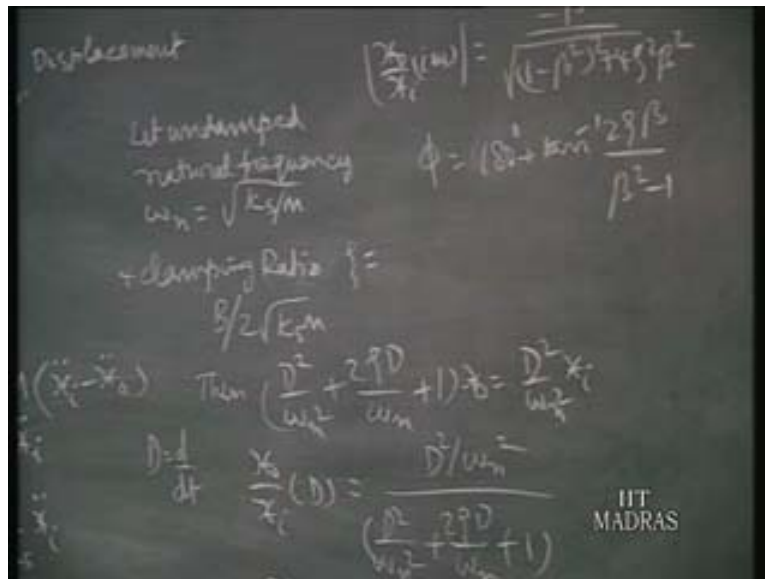 Displacement
|x₀/xᵢ(iω)| = / √(1-β²)²+4ζ²β²
Let undamped
natural frequency
ωₙ = √kₛ/M
φ = 180°+ tan⁻¹ 2ζβ / β²-1
+ damping Ratio ζ =
B/2√kₛM
(ẍᵢ-ẍ₀) Then (D²/ωₙ² + 2ζD/ωₙ + 1) x₀ = D²/ωₙ² xᵢ
ẍᵢ
D=d/dt x₀/xᵢ (D) = D²/ωₙ² / (D²/ωₙ² + 2ζD/ωₙ + 1)
ẍᵢ
IIT
MADRAS